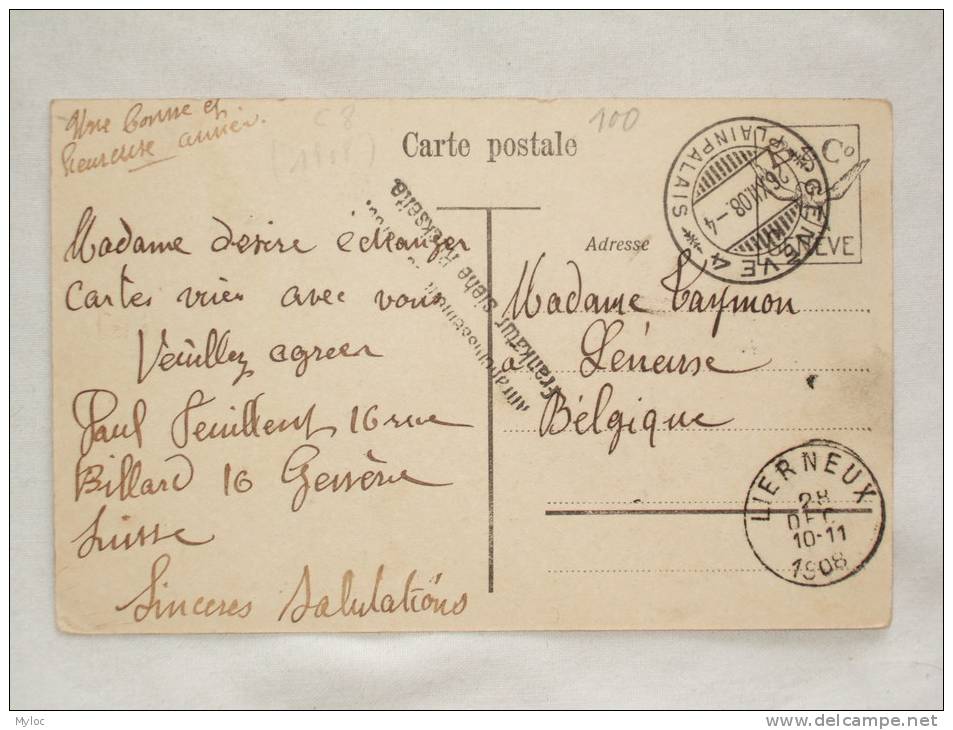 Une bonne et
heureuse année.
C8
(1908)
100
Carte postale
Adresse
& Co
GENÈVE
GENÈVE 4
PLAINPALAIS
26.XII.08.-4
Frankatur siehe Rückseite.
Affranchissement au
Madame desire échanger
Cartes vues avec vous
Veuillez agréer
Paul Feuillent 16 rue
Billard 16 Genève
Suisse
Sinceres Salutations
Madame Taymon
à
Bélgique
LIERNEUX
28
DEC
10-11
1908
Myloc
delcampe.net